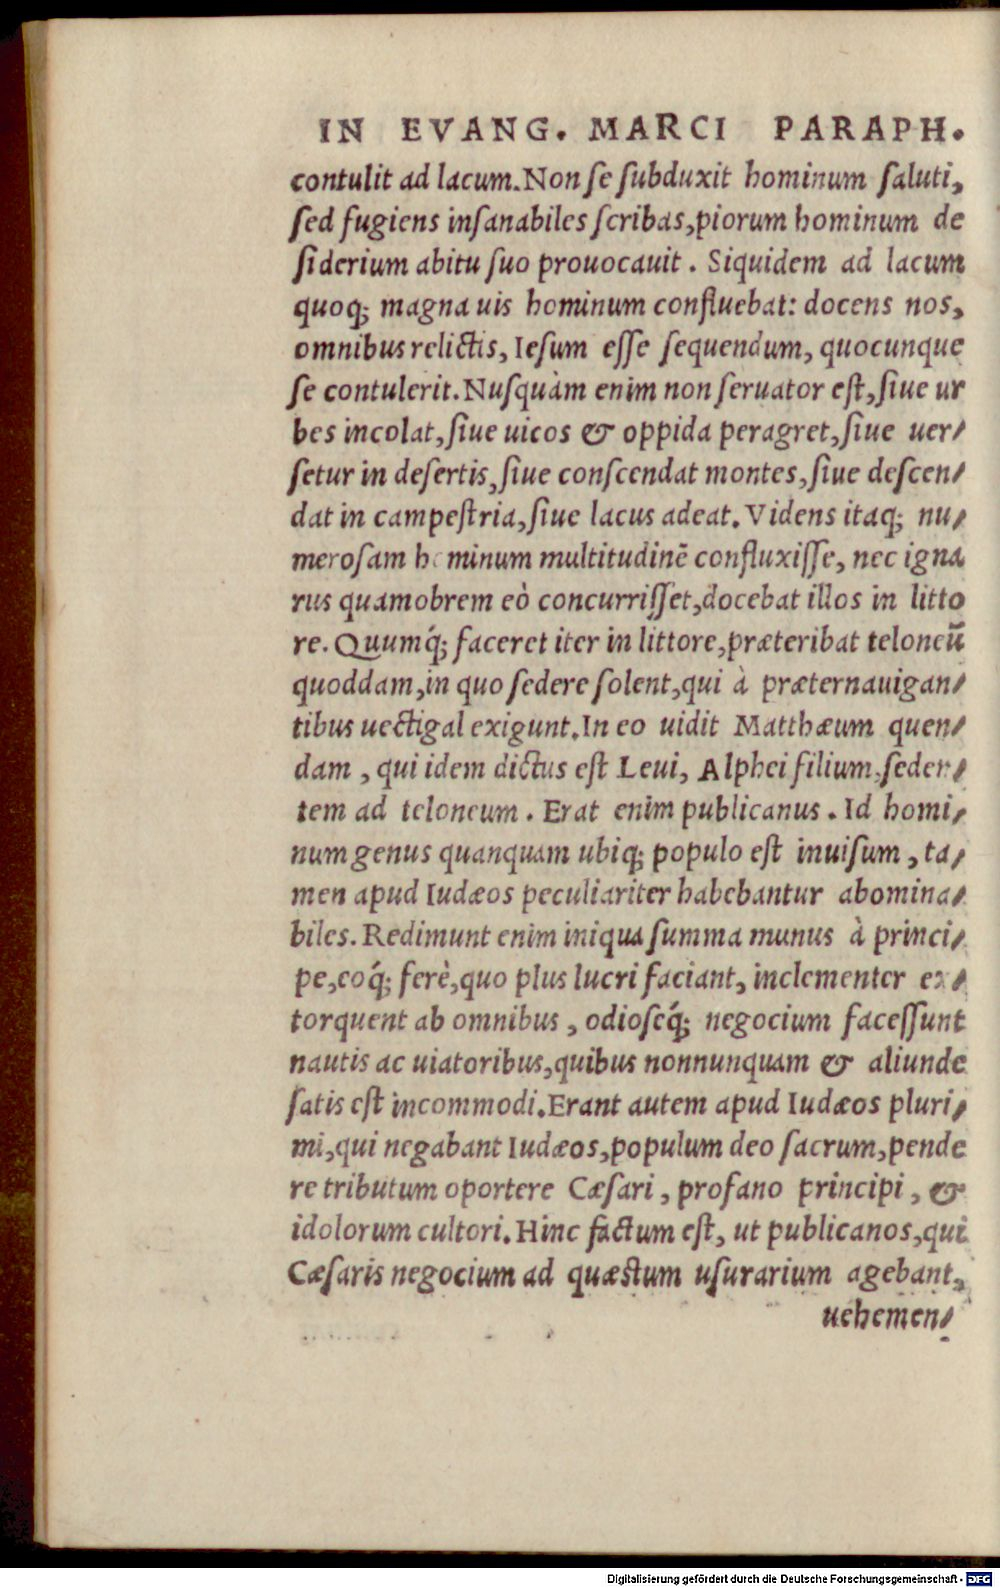 IN EVANG. MARCI PARAPH.
contulit ad lacum. Non se subduxit hominum saluti,
sed fugiens insanabiles scribas, piorum hominum de
siderium abitu suo prouocauit. Siquidem ad lacum
quoq; magna uis hominum confluebat: docens nos,
omnibus relictis, Iesum esse sequendum, quocunque
se contulerit. Nusquàm enim non seruator est, siue ur
bes incolat, siue uicos & oppida peragret, siue uer/
setur in desertis, siue conscendat montes, siue descen/
dat in campestria, siue lacus adeat. Videns itaq; nu/
merosam hominum multitudinē confluxisse, nec igna
rus quamobrem eò concurrisset, docebat illos in litto
re. Quumq́; faceret iter in littore, præteribat teloneū
quoddam, in quo sedere solent, qui à præternauigan/
tibus uectigal exigunt. In eo uidit Matthæum quen/
dam, qui idem dictus est Leui, Alphei filium, seden/
tem ad teloneum. Erat enim publicanus. Id homi/
num genus quanquam ubiq; populo est inuisum, ta/
men apud Iudæos peculiariter habebantur abomina/
biles. Redimunt enim iniqua summa munus à princi/
pe, eoq́; ferè, quo plus lucri faciant, inclementer ex/
torquent ab omnibus, odioseq́; negocium facessunt
nautis ac uiatoribus, quibus nonnunquam & aliunde
satis est incommodi. Erant autem apud Iudæos pluri/
mi, qui negabant Iudæos, populum deo sacrum, pende
re tributum oportere Cæsari, profano principi, &
idolorum cultori. Hinc factum est, ut publicanos, qui
Cæsaris negocium ad quæstum usurarium agebant,
uehemen/
Digitalisierung gefördert durch die Deutsche Forschungsgemeinschaft - DFG